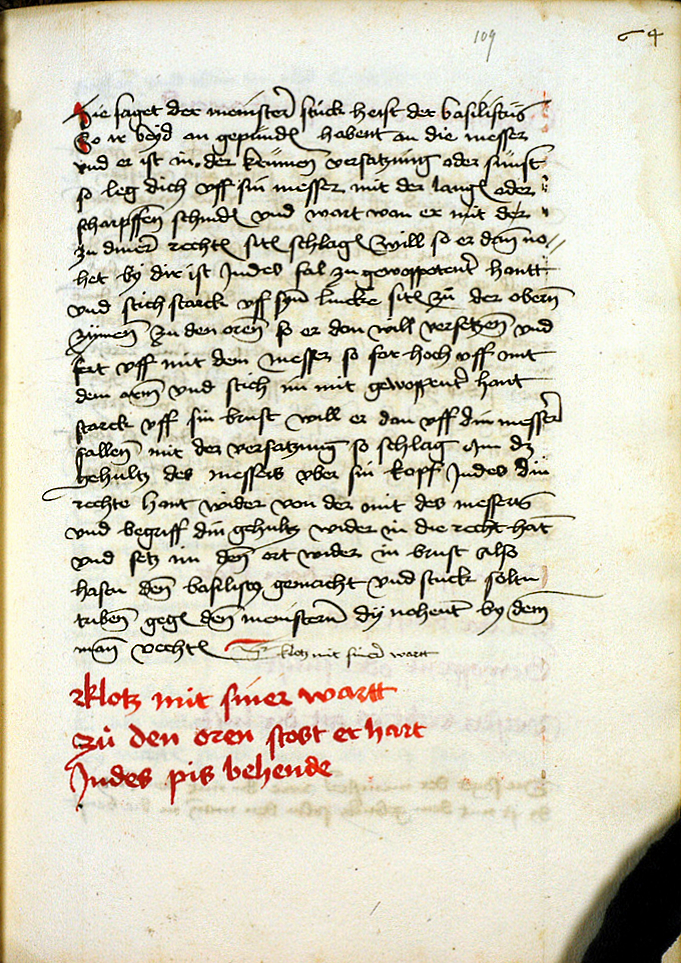 109
64
Hie saget der meinster stuck heist der basiliscus
So ir beyd an gepundē habent an die messer
vnd er ist in der krūmen versatzūng oder sūnst
so leg dich vff sin messer mit der langē oder
scharpffen schnidē vnd wart wan er mit der
zu diner rechtē sitē schlagē will so er dan no//
het by dir ist Jndes fal zu gewoppotent hantt
vnd stich starck vff syn lincke sitē zu der obern
zymen zu den oren so er dan will versetzen vnd
fert vff mit dem messer so far hoch vff mit
dem arm vnd stich im mit gewoppent hant
starck vff sin brust will er dan vff din messer
fallen mit der versatzung so schlag im dz
gehultz des messers vber sin kopf Jndes din
rechte hant wider von der mit des messers
vnd begriff din gehultz wider in die recht hāt
vnd setz im den ort wider in brust also
hastu den basiliscg gemacht vnd stuck soltu
triben gegē den meinstern dy nohent by dem
man vechtē klotz mit siner wartt
klotz mit siner wartt
zu den oren stost er hart
Jndes pis behende